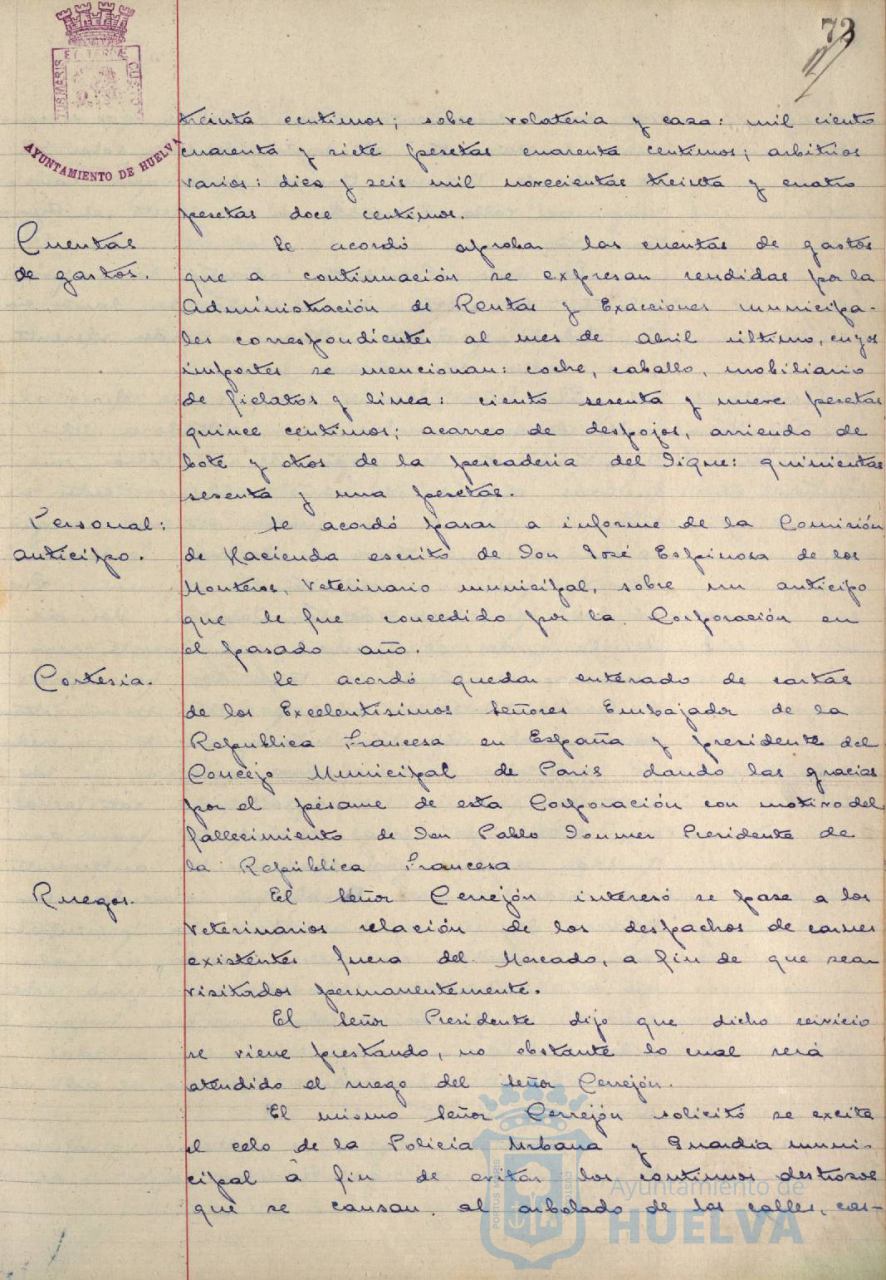 73
PORTUS MARIS ET TERRAE CUSTODIA
AYUNTAMIENTO DE HUELVA
treinta centimos; sobre volateria y caza: mil ciento
cuarenta y siete pesetas cuarenta centimos; arbitrios
varios: diez y seis mil novecientas treinta y cuatro
pesetas doce centimos.
Cuentas
de gastos.
Se acordó aprobar las cuentas de gastos
que a continuación se expresan rendidas por la
Administración de Rentas y Exacciones municipa-
les correspondientes al mes de abril último, cuyos
importes se mencionan: coche, caballo, mobiliario
de fielatos y linea: ciento sesenta y nueve pesetas
quince centimos; acarreo de despojos, arriendo de
bote y otros de la pescaderia del Dique: quinientas
sesenta y una pesetas.
Personal:
anticipo.
Se acordó pasar a informe de la Comisión
de Hacienda escrito de Don José Espinosa de los
Monteros, Veterinario municipal, sobre un anticipo
que le fue concedido por la Corporación en
el pasado año.
Cortesia.
Se acordó quedar enterado de cartas
de los Excelentísimos Señores Embajador de la
Republica Francesa en España y presidente del
Concejo Municipal de Paris dando las gracias
por el pésame de esta Corporación con motivo del
fallecimiento de Don Pablo Doumer Presidente de
la República Francesa
Ruegos.
El Señor Cerrejón interesó se pase a los
Veterinarios relación de los despachos de carnes
existentes fuera del Mercado, a fin de que sean
visitados permanentemente.
El Señor Presidente dijo que dicho servicio
se viene prestando, no obstante lo cual será
atendido el ruego del Señor Cerrejón.
El mismo Señor Cerrejón solicitó se excite
el celo de la Policia Urbana y Guardia muni-
cipal a fin de evitar los continuos destrozos
que se causan al arbolado de las calles, cas-
Ayuntamiento de
HUELVA